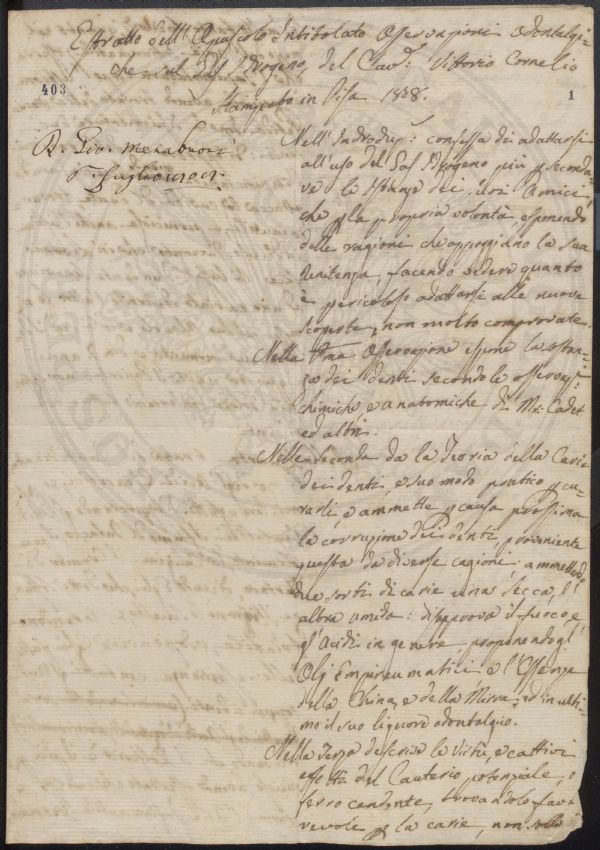 Estratto dell'Opuscolo Intitolato Osservazioni Odontalgi=
che sul Gas Idrogeno, del Cav.: Vittorio Cornelio
403
1
Stampato in Pisa 1838.
D. Gio. Menabuori
Nell' Introduz: confessa di adattarsi
all'uso del Gas Idrogeno più p seconda=
re le Istanze dei suoi Amici,
che p la propria volontà, esponendo
delle ragioni che appoggiano la sua
Renitenza, facendo vedere quanto
è pericoloso adattarsi alle nuove
scoperte, non molto comprovate.
Nella Pma Osservazione espone la sostan=
za dei denti secondo le osservaz:
chimiche, e anatomiche di Mr: Cadet
ed altri.
Nella seconda da la Teoria della Carie
dei denti, e suo modo pratico p cu=
rarli, e ammette p causa prossima
la corruzione dei denti, proveniente
questa da diverse cagioni, ammettendo
due sorti di carie una secca, l'
altra umida: disapprova il fuoco, e
gl' Acidi in genere, proponendo gl'
Olj Empireumatici e l'Essenze
della China, e della Mirra, ed in ulti=
mo il suo liquore odontalgico.
Nella Terza descrive le Virtù, e cattivi
effetti del Cauterio potenziale, o
ferro candente, trovandolo favo
revole p la carie, non solo